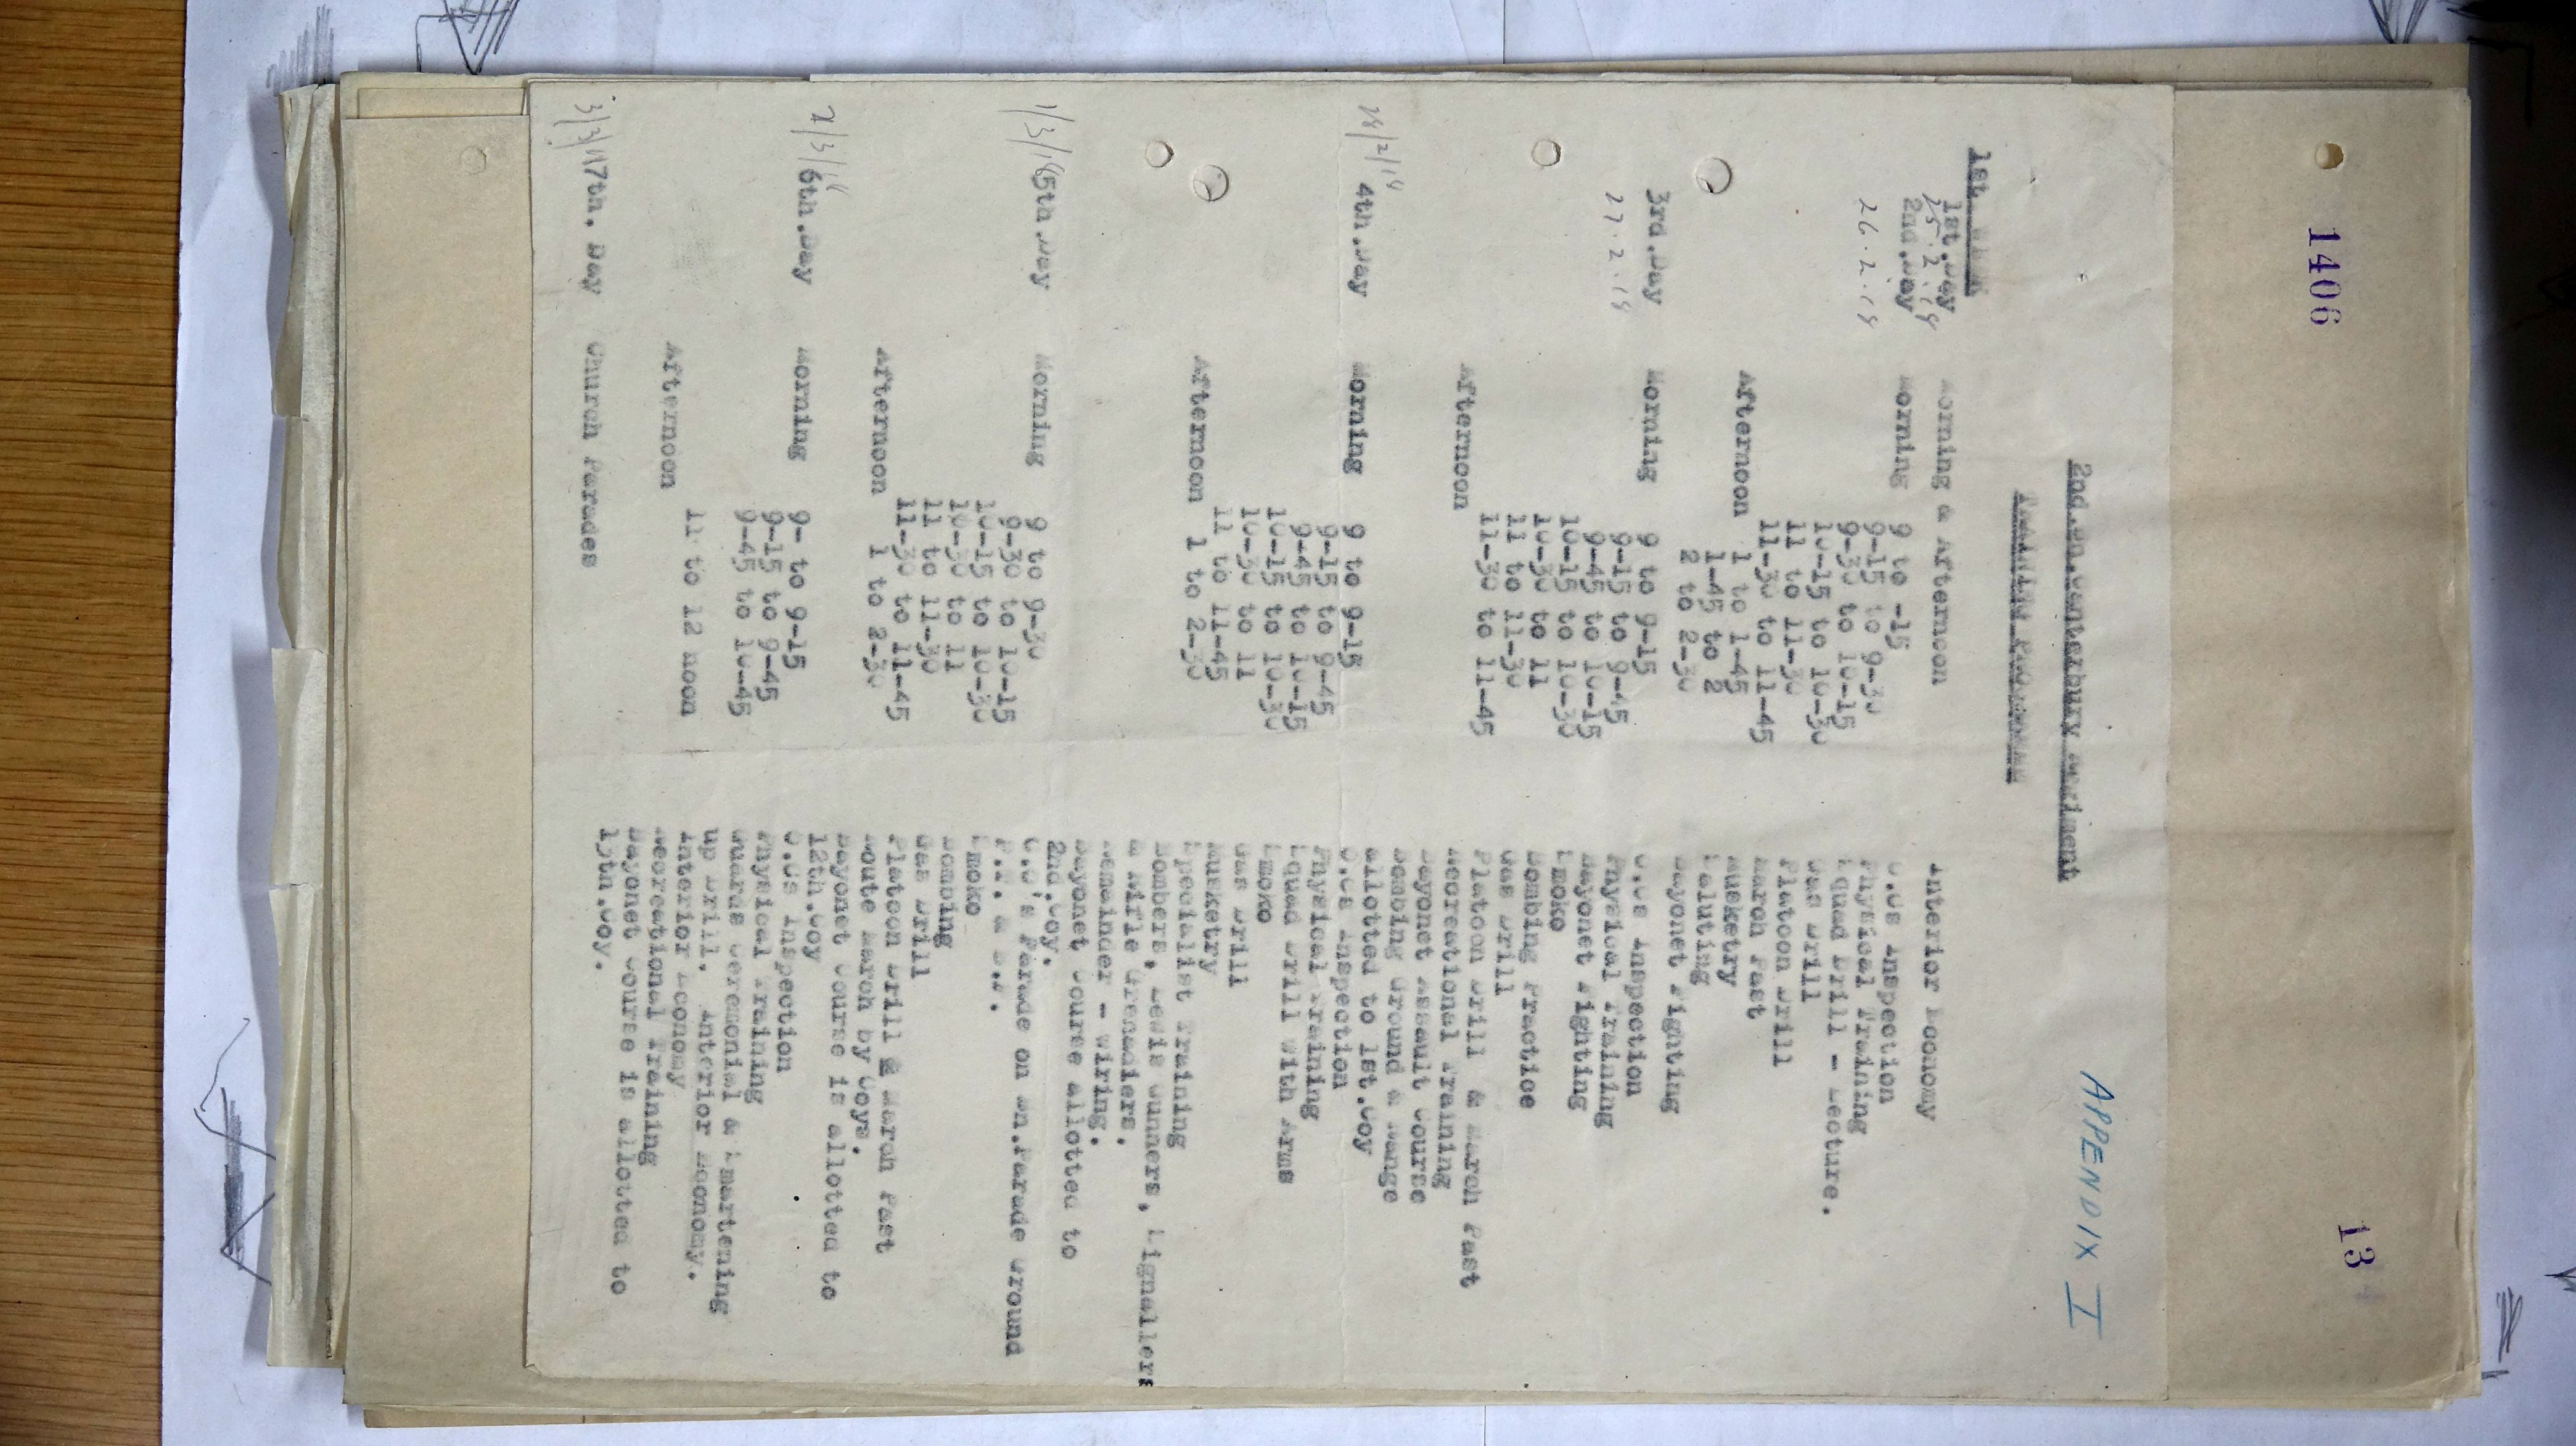 1406
13
APPENDIX I
2nd.Bn.Canterbury Regiment
TRAINING PROGRAMME
1st. WEEK
1st.Day Morning & Afternoon Interior Economy
25.2.18
2nd.Day Morning 9 to -15 O.Cs Inspection
26.2.18
9-15 to 9-30 Physical Training
9-30 to 10-15 Squad Drill - Lecture.
10-15 to 10-30 Gas Drill
11 to 11-30 Platoon Drill
11-30 to 11-45 March Past
Afternoon 1 to 1-45 Musketry
1-45 to 2 Saluting
2 to 2-30 Bayonet Fighting
3rd.Day Morning 9 to 9-15 O.Cs Inspection
27.2.18
9-15 to 9-45 Physical Training
9-45 to 10-15 Bayonet Fighting
10-15 to 10-30 Smoko
10-30 to 11 Bombing Practice
11 to 11-30 Gas Drill
11-30 to 11-45 Platoon Drill & March Past
Afternoon Recreational Training
Bayonet Assault Course
Bombing Ground & Range
allotted to 1st.Coy
28/2/18 4th.Day Morning 9 to 9-15 O.Cs Inspection
9-15 to 9-45 Physical Training
9-45 to 10-15 Squad Drill with Arms
10-15 to 10-30 Smoko
10-30 to 11 Gas Drill
11 to 11-45 Musketry
Afternoon 1 to 2-30 Specialist Training
Bombers, Lewis Gunners, Signallers
& Rifle Grenadiers.
Remainder - Wiring.
Bayonet Course allotted to
2nd.Coy.
1/3/18 5th.Day Morning 9 to 9-30 C.O's Parade on Bn.Parade Ground
9-30 to 10-15 P.T. & B.F.
10-15 to 10-30 Smoko
10-30 to 11 Bombing
11 to 11-30 Gas Drill
11-30 to 11-45 Platoon Drill & March Past
Afternoon 1 to 2-30 Route March by Coys.
Bayonet Course is allotted to
12th.Coy
2/3/18 6th.Day Morning 9- to 9-15 O.Cs Inspection
9-15 to 9-45 Physical Training
9-45 to 10-45 Guards Ceremonial & Smartening
up Drill. Interior Economy.
11 to 12 noon Interior Economy
Afternoon Recreational Training
Bayonet Course is allotted to
13th.Coy.
3/3/18 7th. Day Church Parades